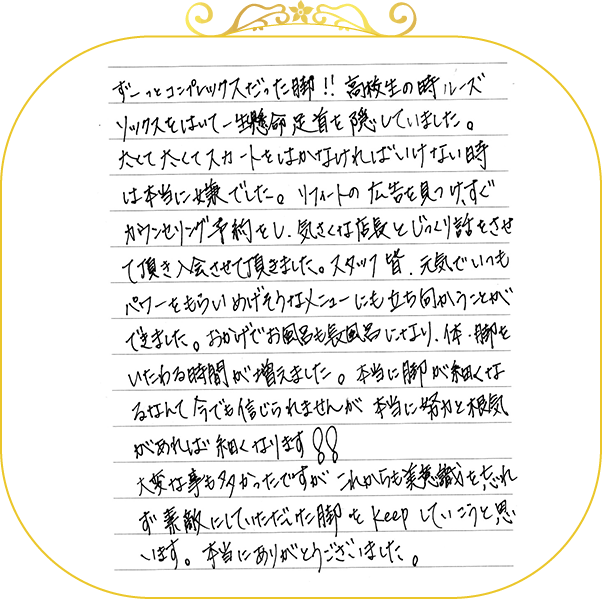 ずーっとコンプレックスだった脚!! 高校生の時ルーズ
ソックスをはいて一生懸命足首を隠していました。
太くて太くてスカートをはかなければいけない時
は本当に嫌でした。リフィートの広告を見つけ、すぐ
カウンセリング予約をし、気さくな店長とじっくり話をさせ
て頂き入会させて頂きました。スタッフ皆、元気でいつも
パワーをもらいめげそうなメニューにも立ち向かうことが
できました。おかげでお風呂も長風呂になり、体・脚を
いたわる時間が増えました。本当に脚が細くな
るなんて今でも信じられませんが 本当に努力と根気
があれば細くなります!!
大変な事も多かったですが これからも美意識を忘れ
ず素敵にしていただいた脚をKeepしていこうと思
います。本当にありがとうございました。